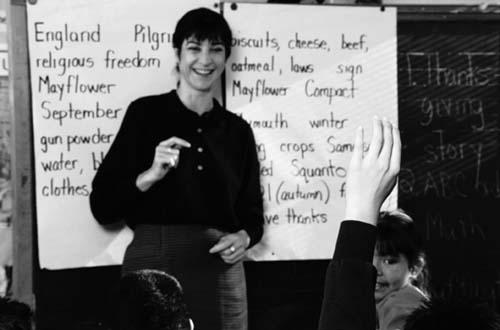 England Pilgri
religious freedom
Mayflower
September
gun powder
water,
clothes
biscuits, cheese, beef,
oatmeal, laws sign
Mayflower Compact
mouth winter
crops
Squanto
(autumn)
ve thanks
I. Thanks
giving
story
Math